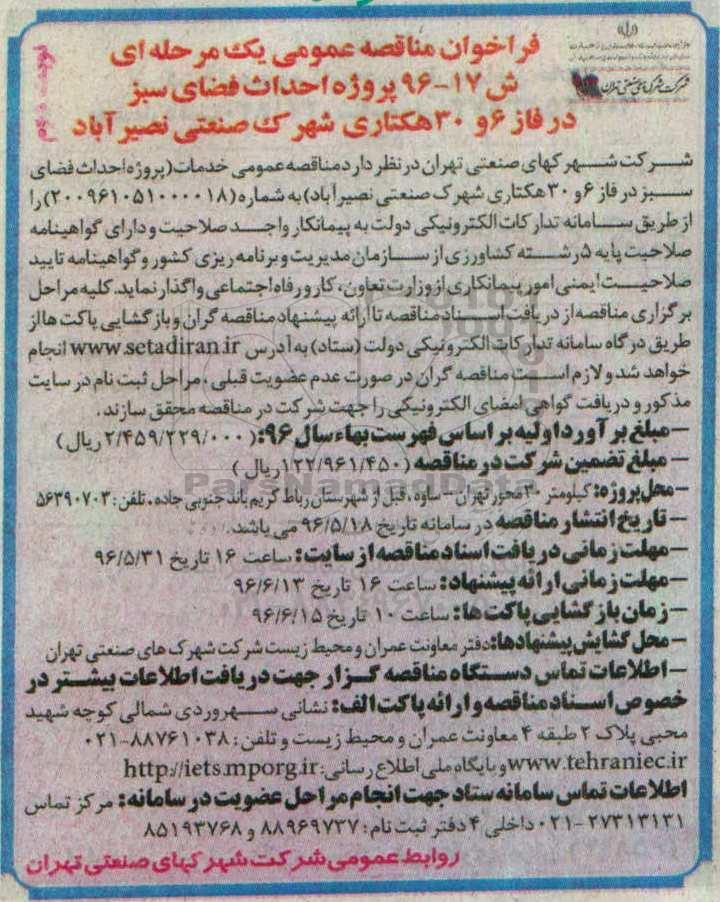 نوبت دوم
شرکت شهرکهای صنعتی تهران
فراخوان مناقصه عمومی یک مرحله ای
ش ۱۷-۹۶ پروژه احداث فضای سبز
در فاز ۶ و ۳۰ هکتاری شهرک صنعتی نصیرآباد
شرکت شهرکهای صنعتی تهران در نظر دارد مناقصه عمومی خدمات (پروژه احداث فضای
سبز در فاز ۶ و ۳۰ هکتاری شهرک صنعتی نصیرآباد) به شماره (۲۰۰۹۶۱۰۵۱۰۰۰۰۱۸) را
از طریق سامانه تدارکات الکترونیکی دولت به پیمانکار واجد صلاحیت و دارای گواهینامه
صلاحیت پایه ۵ رشته کشاورزی از سازمان مدیریت و برنامه ریزی کشور و گواهینامه تایید
صلاحیت ایمنی امور پیمانکاری از وزارت تعاون، کار و رفاه اجتماعی واگذار نماید. کلیه مراحل
برگزاری مناقصه از دریافت اسناد مناقصه تا ارائه پیشنهاد مناقصه گران و بازگشایی پاکت ها از
طریق درگاه سامانه تدارکات الکترونیکی دولت (ستاد) به آدرس www.setadiran.ir انجام
خواهد شد و لازم است مناقصه گران در صورت عدم عضویت قبلی، مراحل ثبت نام در سایت
مذکور و دریافت گواهی امضای الکترونیکی را جهت شرکت در مناقصه محقق سازند.
-مبلغ برآورد اولیه بر اساس فهرست بهاء سال ۹۶: (۲/۴۵۹/۲۲۹/۰۰۰ ریال)
- مبلغ تضمین شرکت در مناقصه (۱۲۲/۹۶۱/۴۵۰ ریال)
-محل پروژه: کیلومتر ۳۰ محور تهران - ساوه، قبل از شهرستان رباط کریم باند جنوبی جاده، تلفن: ۵۶۳۹۰۷۰۳
- تاریخ انتشار مناقصه در سامانه تاریخ ۹۶/۵/۱۸ می باشد.
-مهلت زمانی دریافت اسناد مناقصه از سایت: ساعت ۱۶ تاریخ ۹۶/۵/۳۱
-مهلت زمانی ارائه پیشنهاد: ساعت ۱۶ تاریخ ۹۶/۶/۱۳
-زمان بازگشایی پاکت ها: ساعت ۱۰ تاریخ ۹۶/۶/۱۵
-محل گشایش پیشنهادها: دفتر معاونت عمران و محیط زیست شرکت شهرک های صنعتی تهران
-اطلاعات تماس دستگاه مناقصه گزار جهت دریافت اطلاعات بیشتر در
خصوص اسناد مناقصه و ارائه پاکت الف: نشانی سهروردی شمالی کوچه شهید
محبی پلاک ۲ طبقه ۴ معاونت عمران و محیط زیست و تلفن: ۸۸۷۶۱۰۳۸-۰۲۱
www.tehraniec.ir و پایگاه ملی اطلاع رسانی: http://iets.mporg.ir
اطلاعات تماس سامانه ستاد جهت انجام مراحل عضویت در سامانه: مرکز تماس
۲۷۳۱۳۱۳۱-۰۲۱ داخلی ۴ دفتر ثبت نام: ۸۸۹۶۹۷۳۷ و ۸۵۱۹۳۷۶۸
روابط عمومی شرکت شهرکهای صنعتی تهران
ParsNamadData